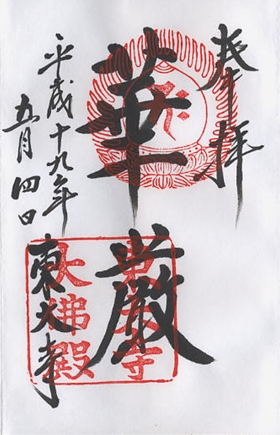 奉拝
華厳
平成十九年
五月四日
東大寺
東大寺
大佛殿